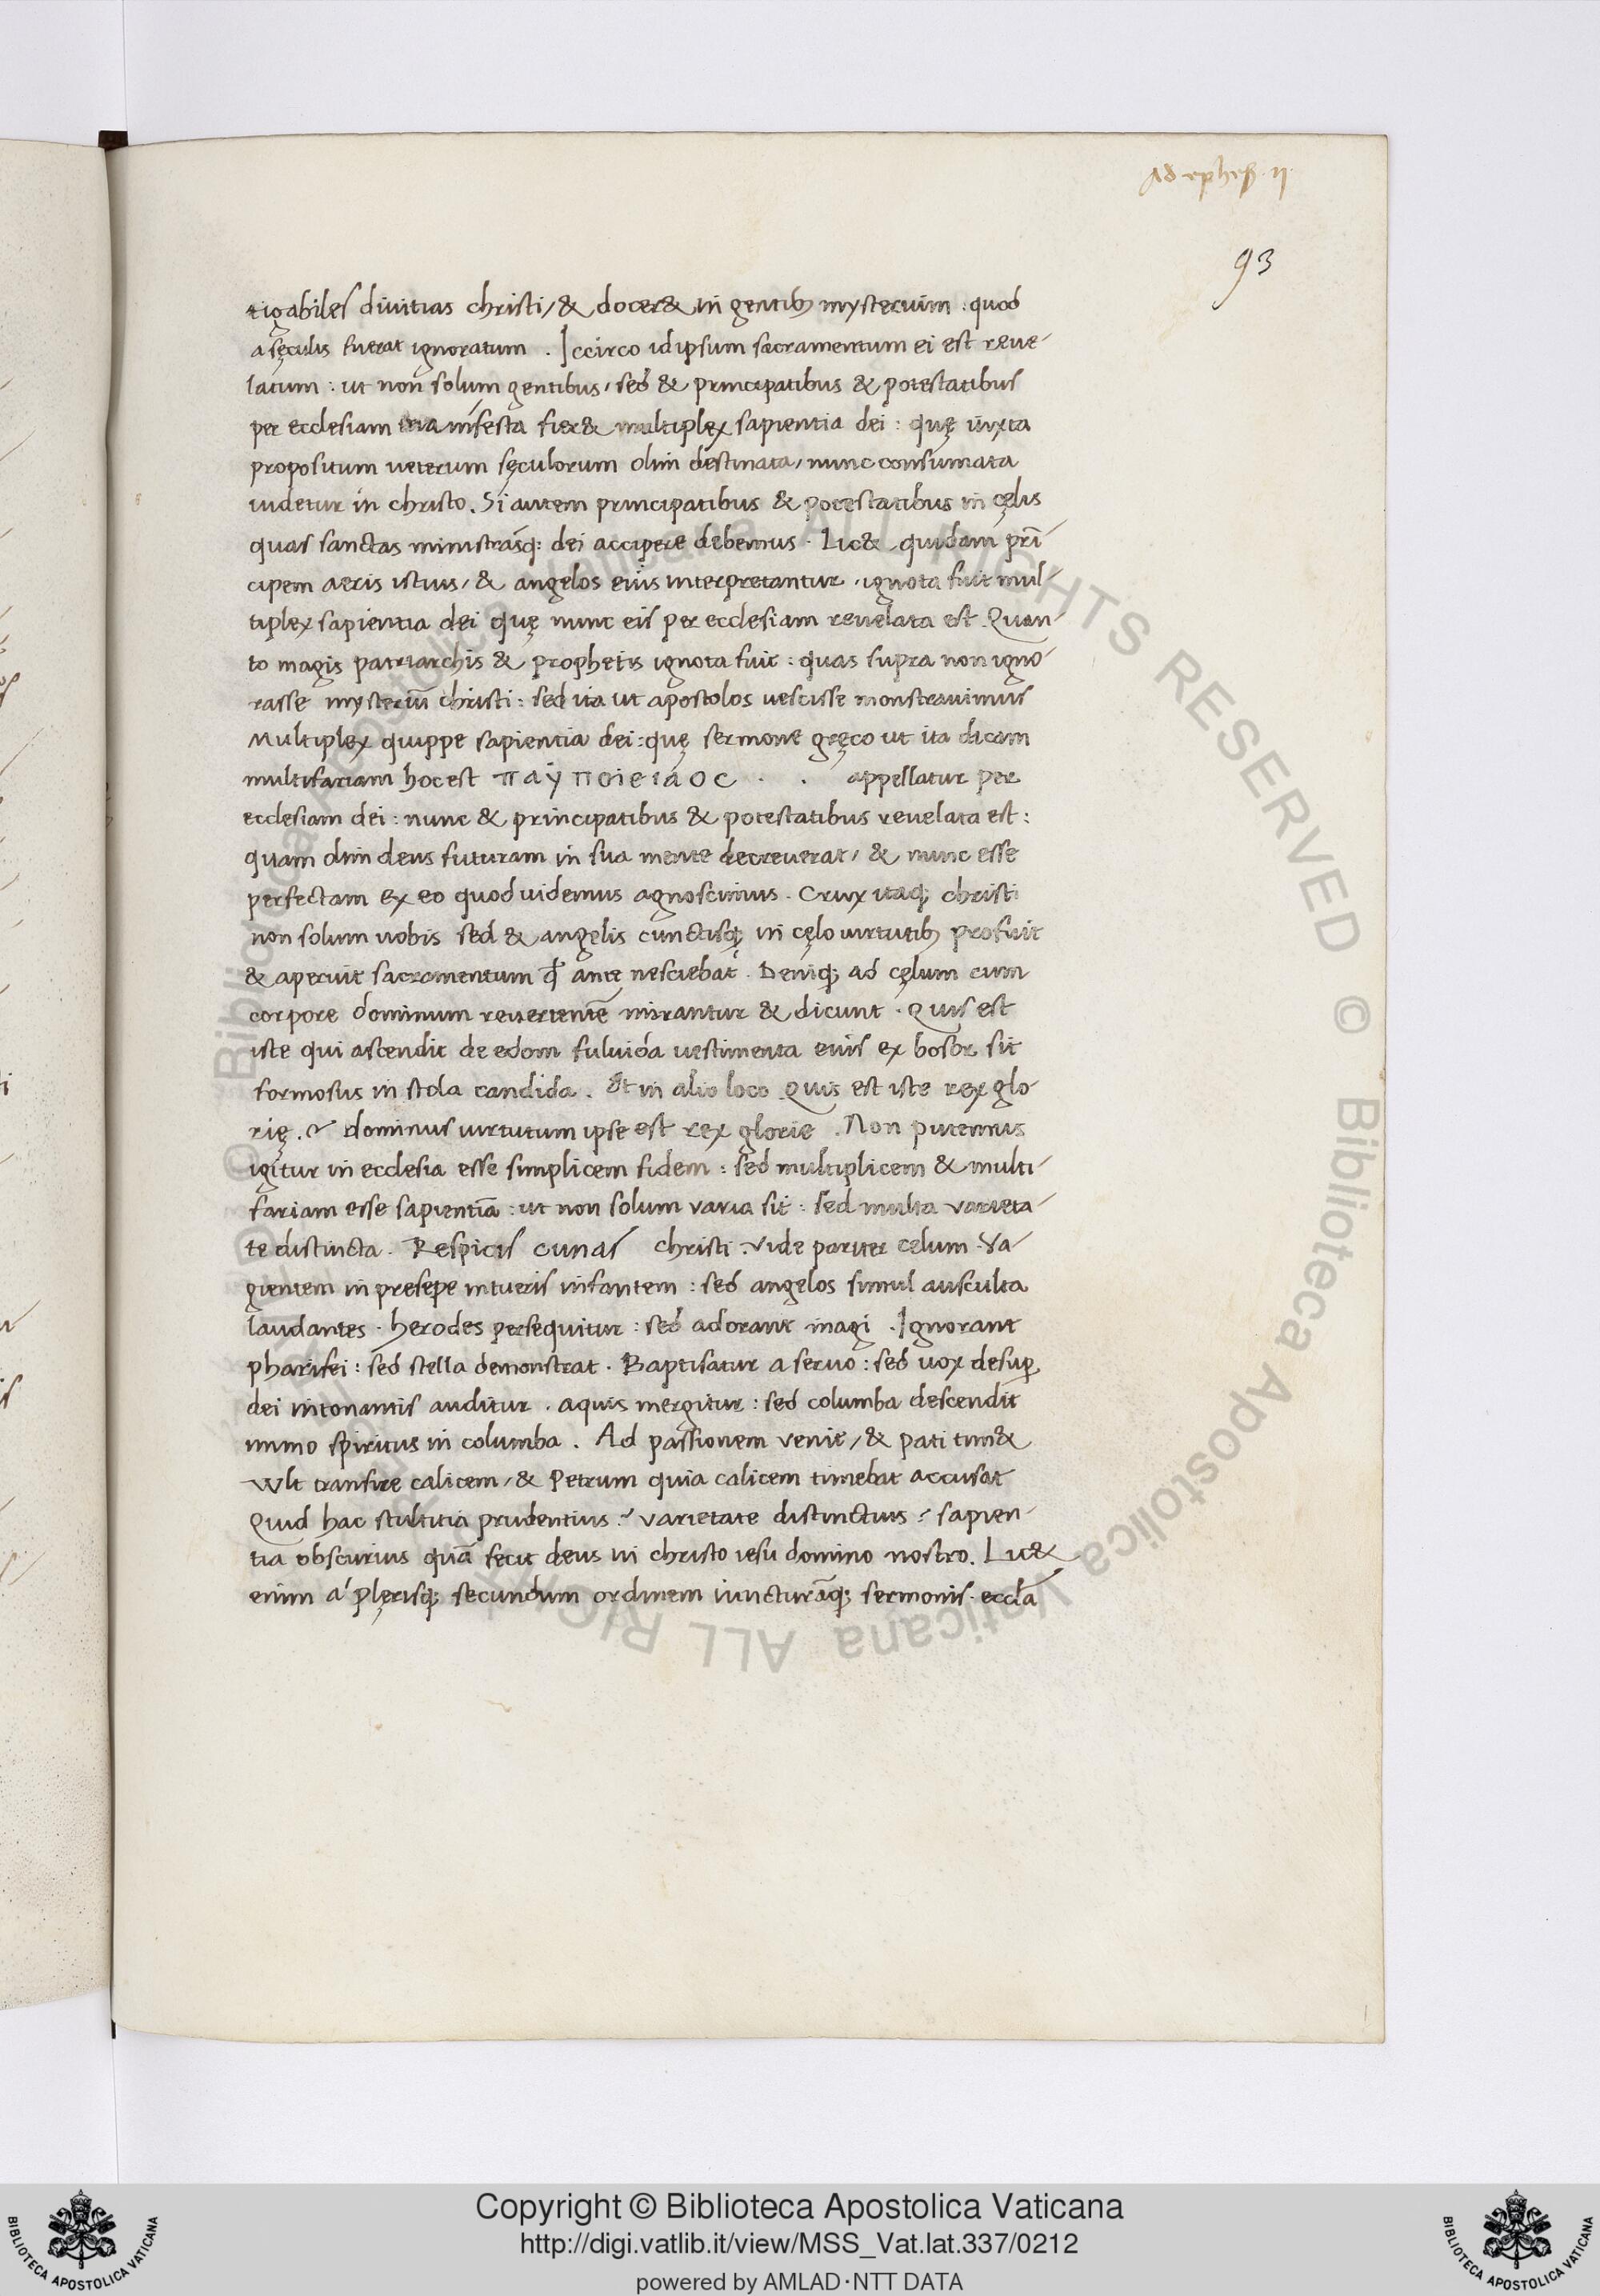 Ad ephes. ii
93
tigabiles divitias christi / & docer& in gentib; mysterium : quod
a sęculis fuerat ignoratum . Iccirco idipsum sacramentum ei est reue-
latum : ut non solum gentibus / sed & principatibus & potestatibus
per ecclesiam manifesta fier& multiplex sapientia dei : quę iuxta
propositum ueterum sęculorum olim destinata / nunc consumata
uidetur in christo . Si autem principatibus & potestatibus in cęlis
quas sanctas ministrasq; dei accipere debemus . Lic& quidam prī
cipem aeris istius / & angelos eius interpretantur . ignota fuit mul-
tiplex sapientia dei quę nunc eis per ecclesiam reuelata est . Quan-
to magis patriarchis & prophetis ignota fuit : quas supra non igno-
rasse mysteriū christi : sed ita ut apostolos nescisse monstrauimus
Multiplex quippe sapientia dei : quę sermone gręco ut ita dicam
multifariam hoc est παγποιειλος . . appellatur per
ecclesiam dei : nunc & principatibus & potestatibus reuelata est :
quam olim deus futuram in sua mente decreuerat / & nunc esse
perfectam ex eo quod uidemus agnoscimus . Crux itaq; christi
non solum nobis sed & angelis cunctisq; in cęlo uirtutib; profuit
& aperuit sacramentum qd̄ ante nesciebāt . Deniq; ad cęlum cum
corpore dominum reuertentē mirantur & dicunt . Quis est
iste qui ascendit de edom fuluida uestimenta eius ex bosor sit
formosus in stola candida . Et in alio loco Quis est iste rex glo-
rię . ? dominus uirtutum ipse est rex glorie . Non putemus
igitur in ecclesia esse simplicem fidem : sed multiplicem & multi-
fariam esse sapientiā : ut non solum varia sit : sed multa varieta-
te distincta . Respicis cunas christi . vide pariter celum . Va-
gientem in presepe intueris infantem : sed angelos simul ausculta
laudantes . herodes persequitur : sed adorant magi . Ignorant
pharisei : sed stella demonstrat . Baptisatur a seruo : sed uox desup̱
dei intonantis auditur . aquis mergitur : sed columba descendit
immo spiritus in columba . Ad passionem venit / & pati tim&
wlt transire calicem / & Petrum quia calicem timebat accusat
Quid hac stultitia prudentius ? varietate distinctius ? sapien-
tia obscurius quā fecit deus in christo iesu domino nostro . Lic&
enim a' plęrisq; secundum ordinem iuncturāq; sermonis . eccl̄a
© Biblioteca Apostolica Vaticana ALL RIGHTS RESERVED © Biblioteca Apostolica Vaticana ALL RIGHTS
Copyright © Biblioteca Apostolica Vaticana
http://digi.vatlib.it/view/MSS_Vat.lat.337/0212
powered by AMLAD·NTT DATA
BIBLIOTECA APOSTOLICA VATICANA
BIBLIOTECA APOSTOLICA VATICANA